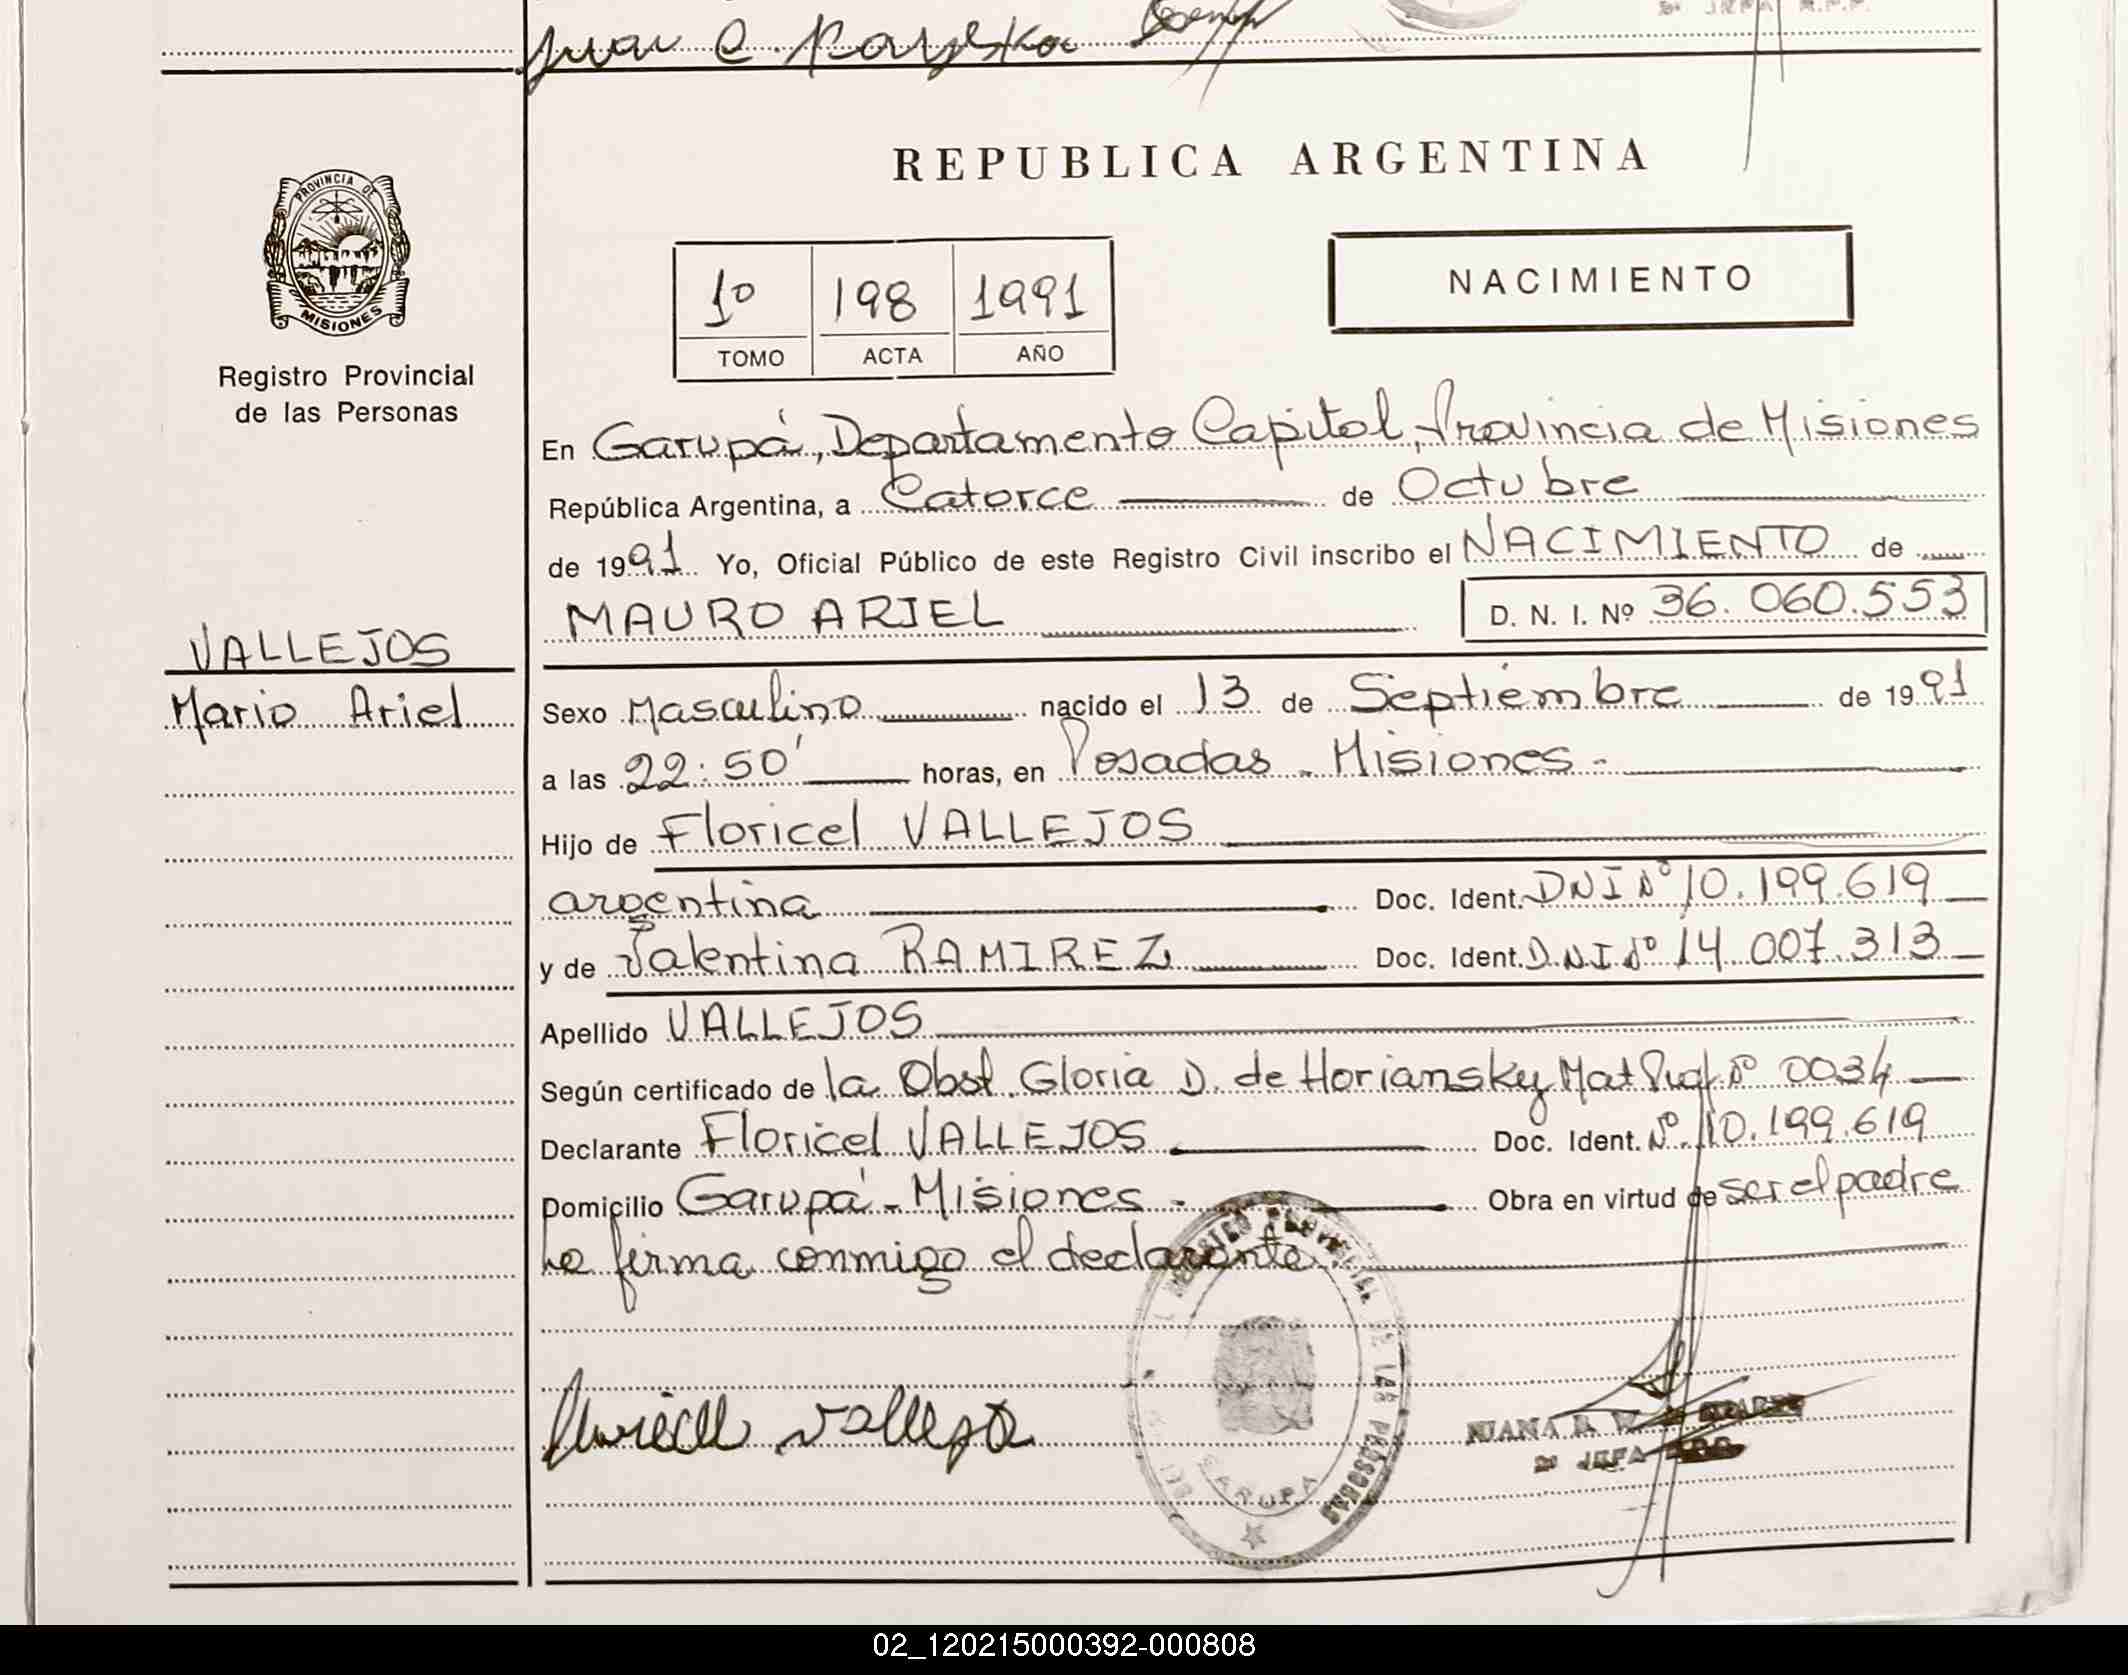 Juan C.
2ª JEFA R.P.P.
PROVINCIA DE
MISIONES
Registro Provincial
de las Personas
VALLEJOS
Mario Ariel
REPUBLICA ARGENTINA
1º 198 1991
TOMO ACTA AÑO
NACIMIENTO
En Garupá, Departamento Capital, Provincia de Misiones
República Argentina, a Catorce de Octubre
de 1991 Yo, Oficial Público de este Registro Civil inscribo el NACIMIENTO de
MAURO ARIEL D. N. I. Nº 36.060.553
Sexo Masculino nacido el 13 de Septiembre de 1991
a las 22:50' horas, en Posadas - Misiones -
Hijo de Floricel VALLEJOS
argentina Doc. Ident. DNI Nº 10.199.619
y de Valentina RAMIREZ Doc. Ident. D.N.I Nº 14.007.313
Apellido VALLEJOS
Según certificado de la Obst. Gloria D. de Horiansky Mat Prof Nº 0034
Declarante Floricel VALLEJOS Doc. Ident. Nº 10.199.619
Domicilio Garupá - Misiones - Obra en virtud de ser el padre
Lo firma conmigo el declarante.
REGISTRO PROVINCIAL DE LAS PERSONAS
GARUPA
Vallejos
JUANA
2ª JEFA R.P.P.
02_120215000392-000808